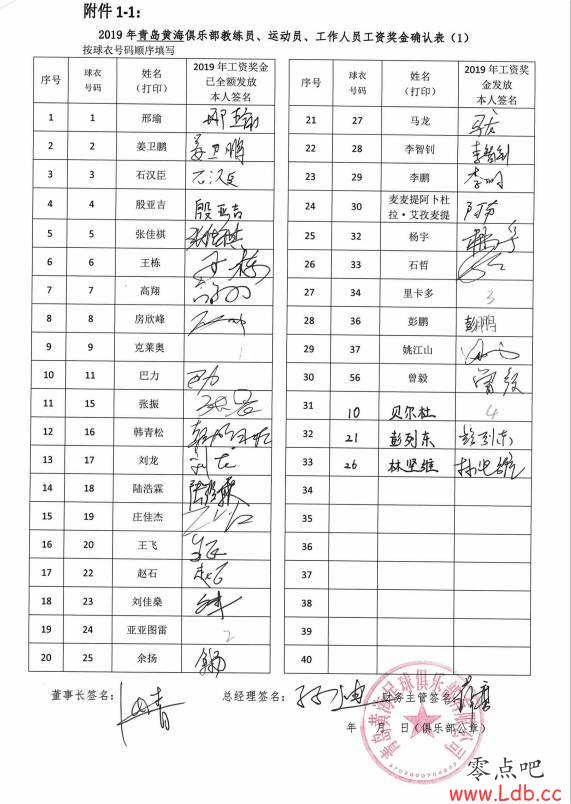 附件 1-1:
2019 年青岛黄海俱乐部教练员、运动员、工作人员工资奖金确认表（1）
按球衣号码顺序填写
序号 球衣号码 姓名（打印） 2019 年工资奖金已全额发放本人签名
1 1 邢瑜 邢瑜
2 2 姜卫鹏 姜卫鹏
3 3 石汉臣 石汉臣
4 4 殷亚吉 殷亚吉
5 5 张佳祺 张佳祺
6 6 王栋 王栋
7 7 高翔
8 8 房欣峰
9 9 克莱奥 1
10 11 巴力 巴力
11 15 张振
12 16 韩青松
13 17 刘龙 刘龙
14 18 陆浩霖 陆浩霖
15 19 庄佳杰
16 20 王飞
17 22 赵石 赵石
18 23 刘佳燊
19 24 亚亚图雷 2
20 25 余扬
序号 球衣号码 姓名（打印） 2019 年工资奖金发放本人签名
21 27 马龙
22 28 李智钊 李智钊
23 29 李鹏 李鹏
24 30 麦麦提阿卜杜拉·艾孜麦提
25 32 杨宇
26 33 石哲
27 34 里卡多 3
28 36 彭鹏 彭鹏
29 37 姚江山
30 56 曾毅 曾毅
31 10 贝尔杜 4
32 21 彭列东 彭列东
33 26 林坚维 林坚维
34
35
36
37
38
39
40
董事长签名： 总经理签名： 财务主管签名：
年 月 日（俱乐部公章）
零点吧
www.Ldb.cc